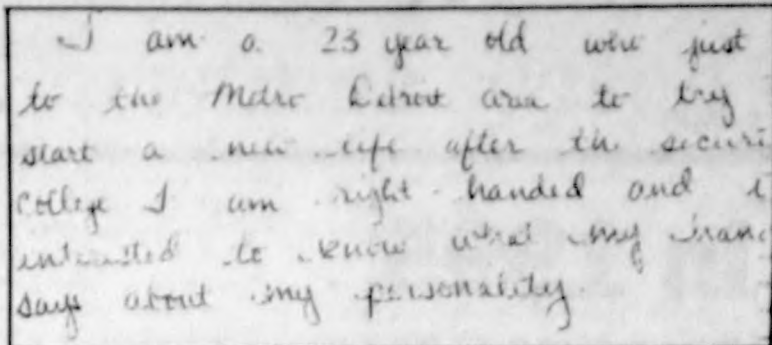 I am a 23 year old who just
to the Metro Detroit area to try
start a new life after the securi
College I am right handed and i
interested to know what my hand
says about my personality.